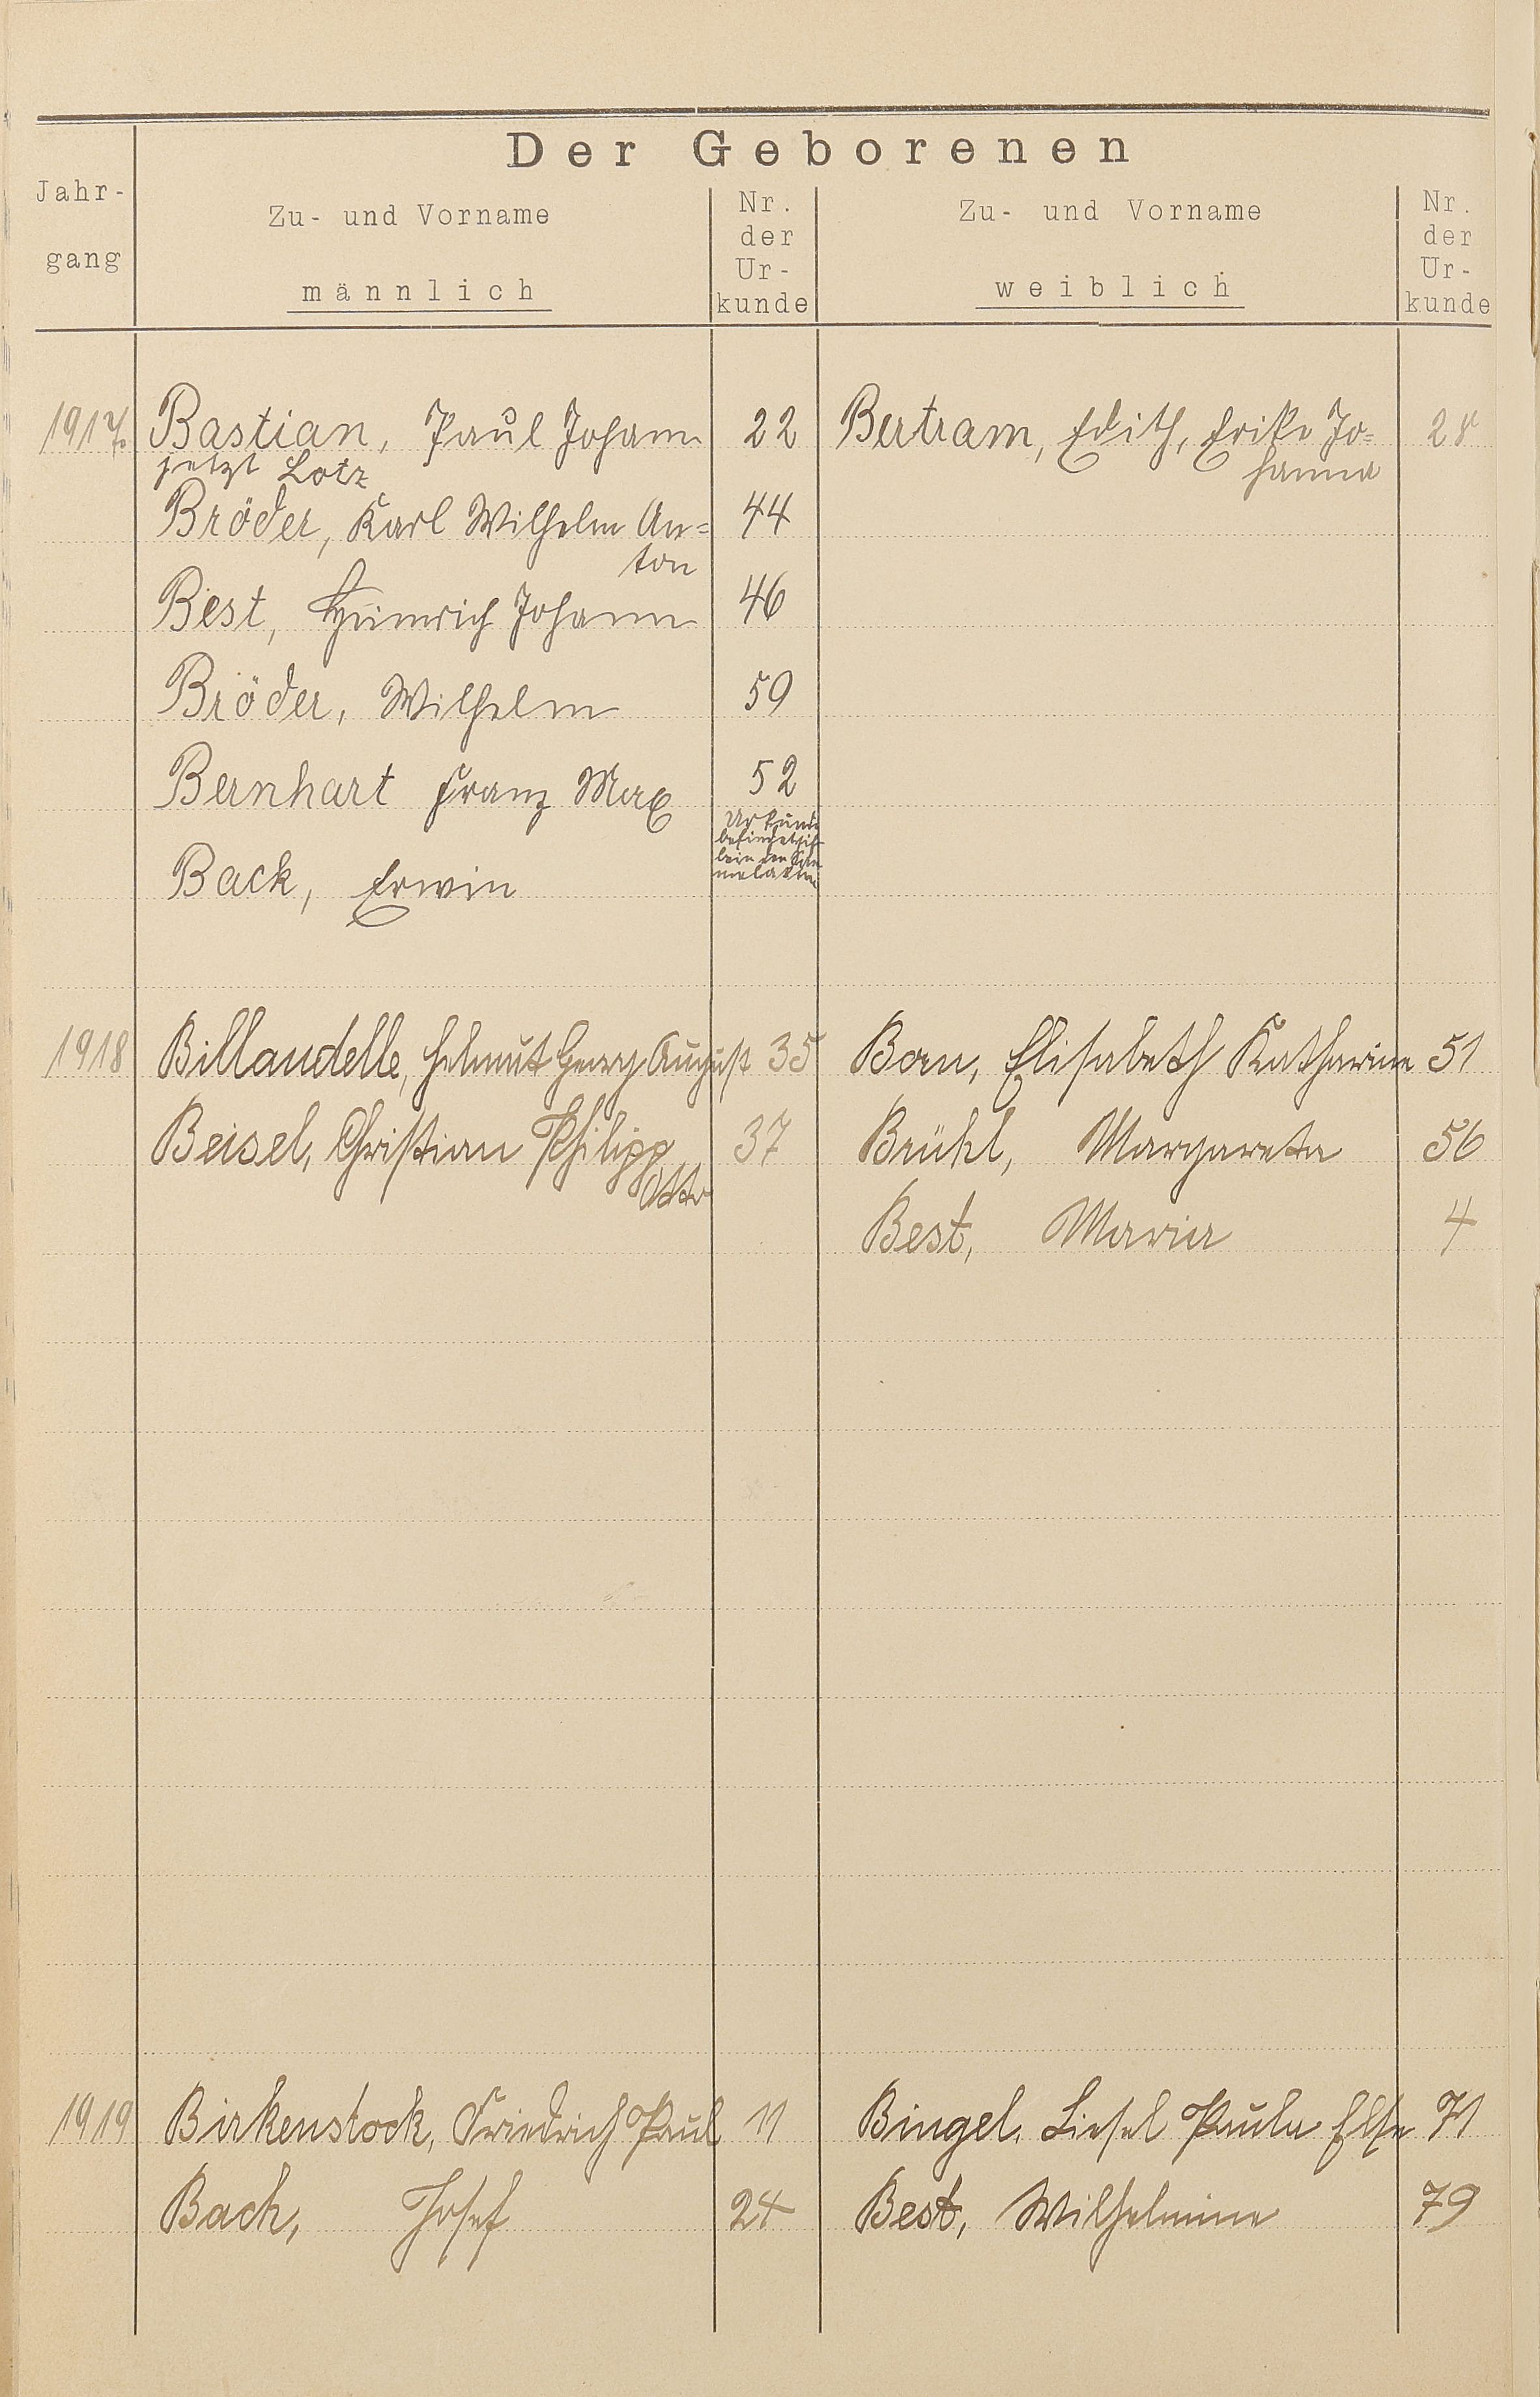 Der Geborenen
Jahr-
gang
Zu- und Vorname
männlich
Nr.
der
Ur-
kunde
Zu- und Vorname
weiblich
Nr.
der
Ur-
kunde
1917. Bastian, Paul Johann 22 Bertram, Edith, Erika Jo= 28
jetzt Lotz hanna
Bröder, Karl Wilhelm An= 44
ton
Best, Heinrich Johann 46
Bröder, Wilhelm 59
Bernhart Franz Max 52
Urkunde
befindet sich
Back, Erwin
1918 Billaudelle, Helmut Georg August 35 Born, Elisabeth Katharina 51
Beisel, Christian Philipp 37 Brühl, Margareta 56
Otto
Best, Maria 4
1919 Birkenstock, Friedrich Paul 11 Bingel, Liesel Paula Else 71
Bach, Josef 24 Best, Wilhelmine 79